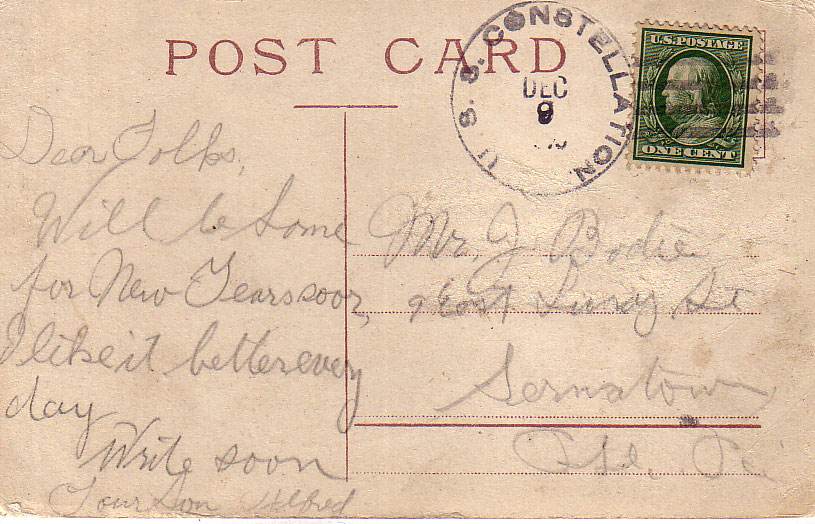 POST CARD
U. S. S. CONSTELLATION
DEC
9
U.S. POSTAGE
ONE CENT
Dear Folks,
Will be home
for New Years
I like it better every
day
Write soon
Your Son Alfred
Mr. J. Bodie
St